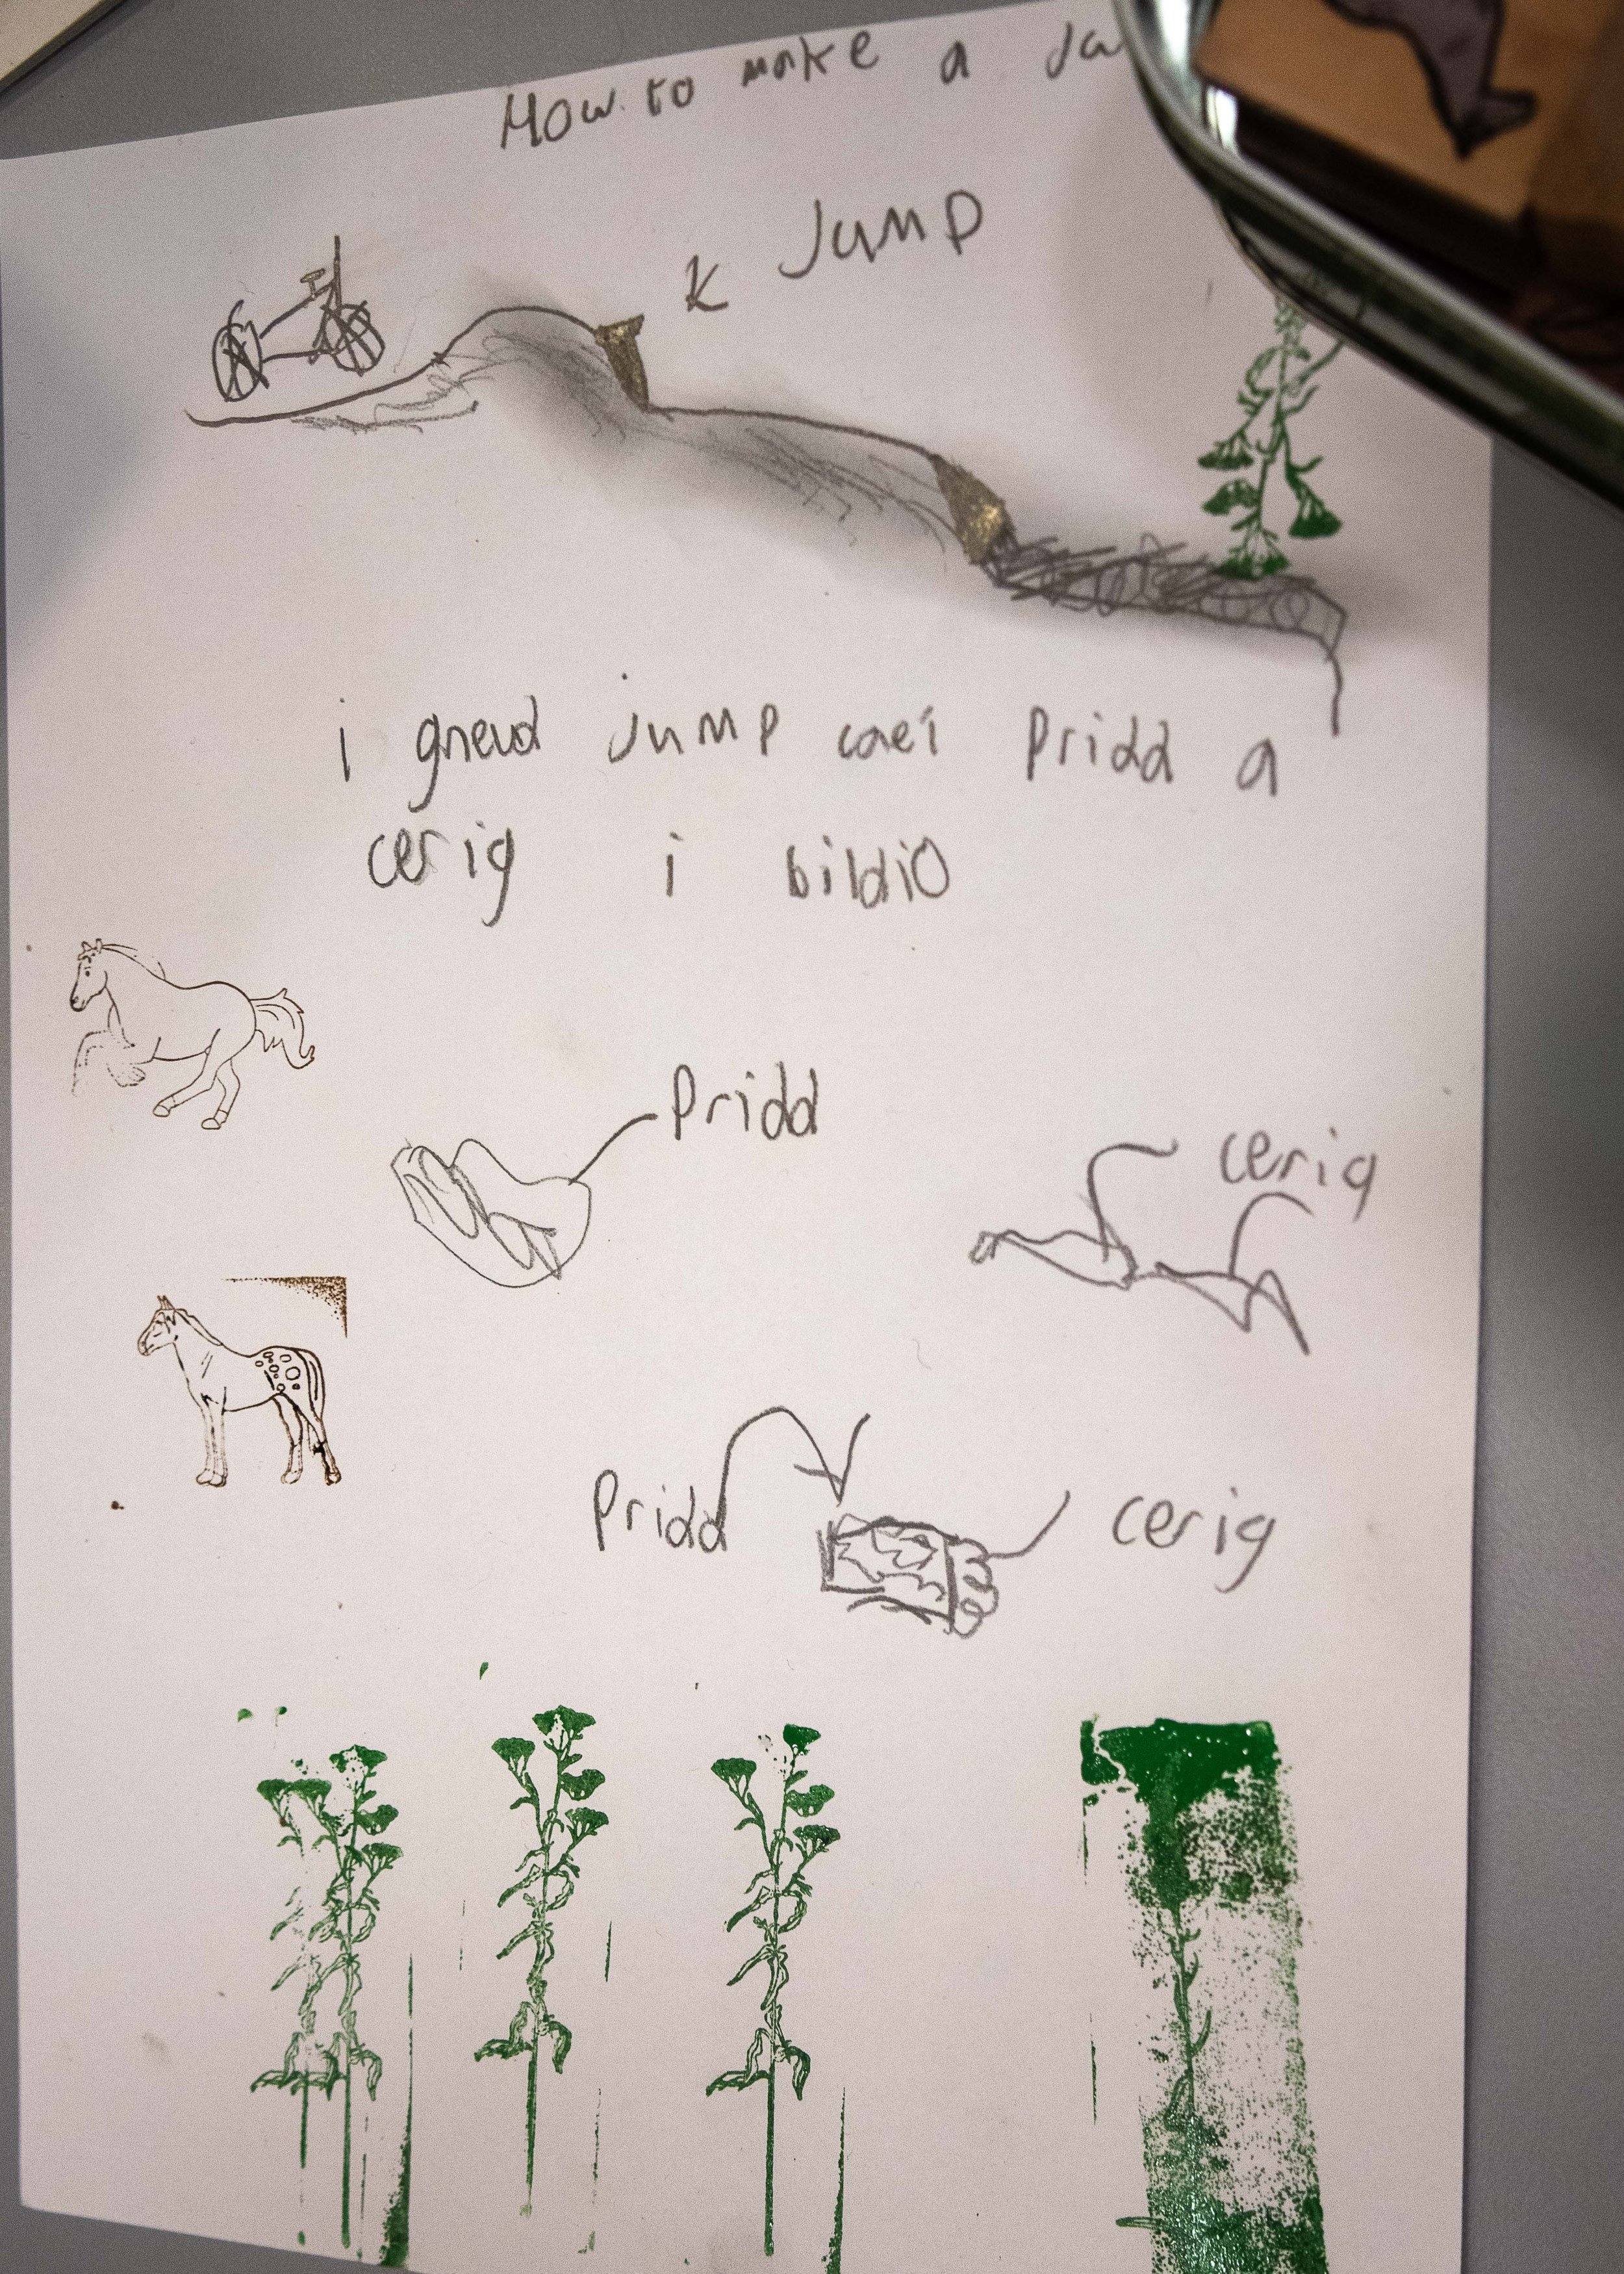 How to make a
K Jump
i gneud jump caei Pridd a
cerig i bildio
Pridd
cerig
Pridd cerig